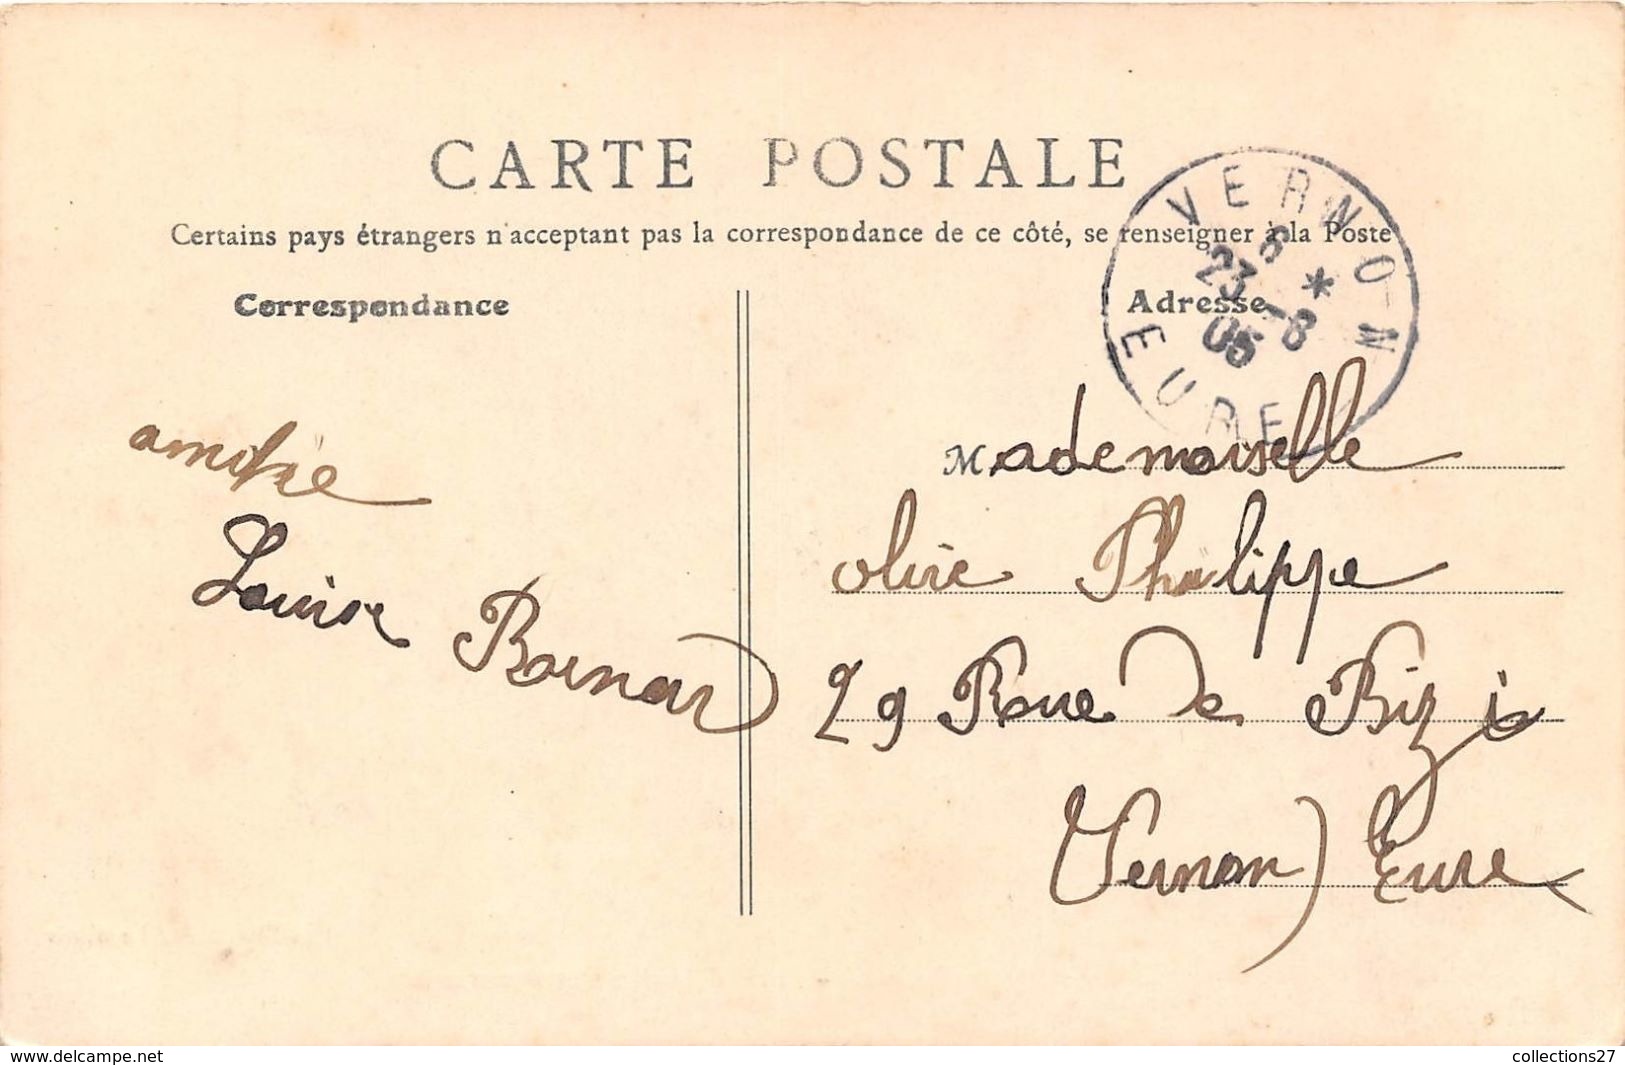 CARTE POSTALE
Certains pays étrangers n'acceptent pas la correspondance de ce côté, se renseigner à la Poste
Correspondance
Adresse
VERNON
6 *
23 -8
05
EURE
amitié
Louise Bornard
Mademoiselle
olive Philippe
29 Rue de Bizy
(Vernon) Eure
www.delcampe.net
collections27